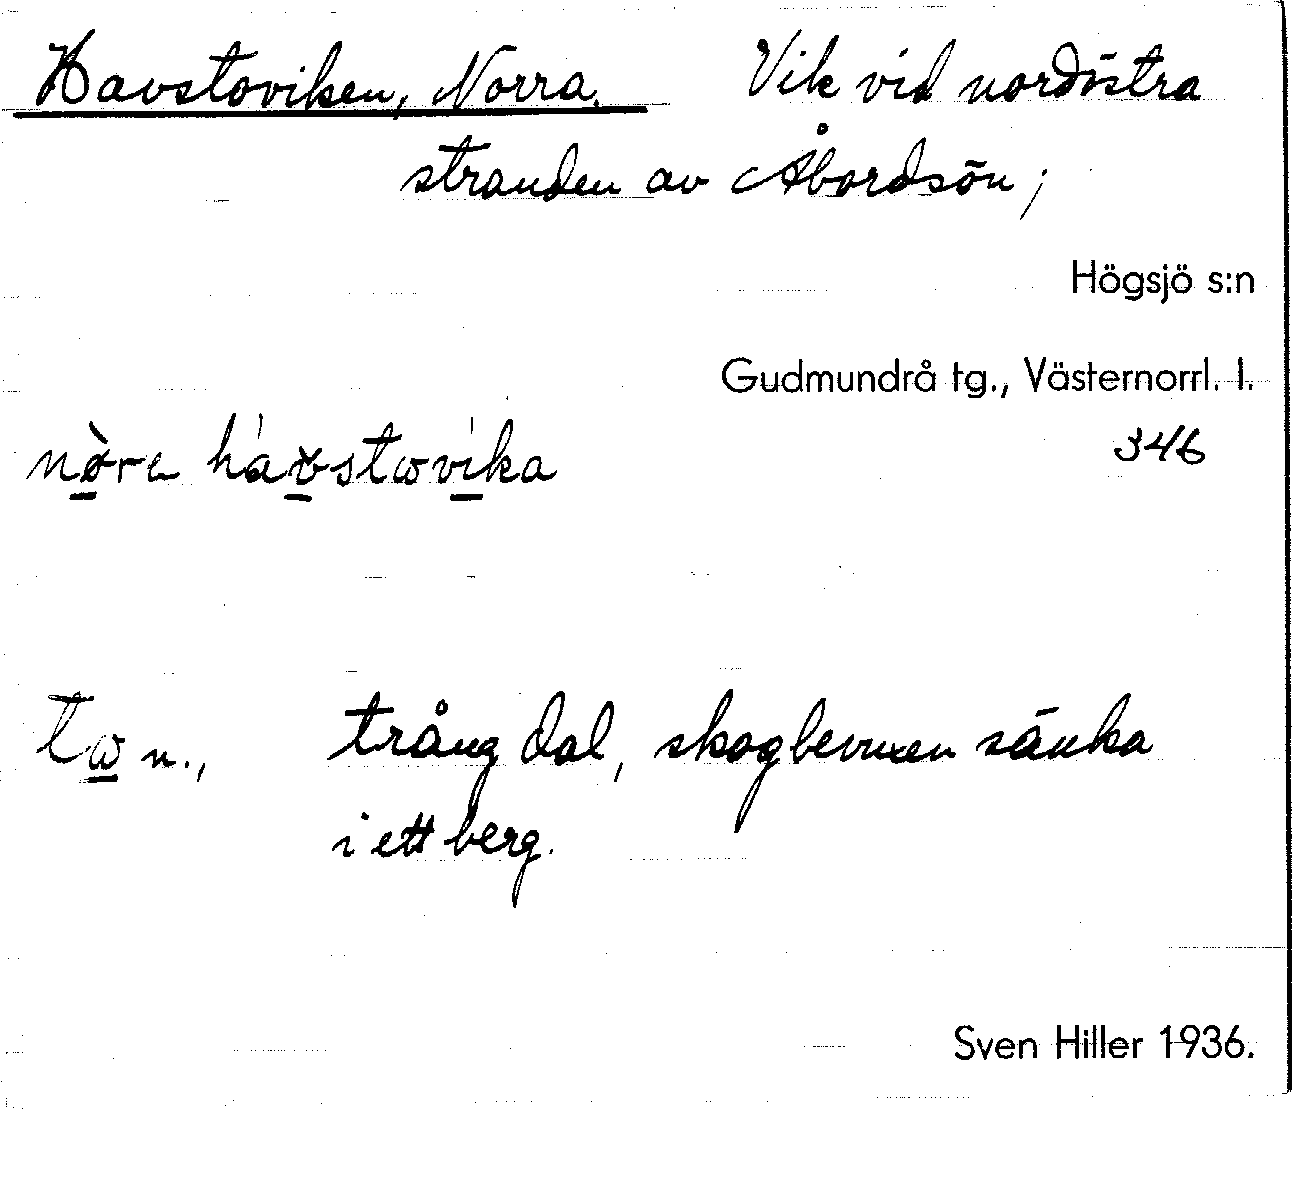 Havstoviken, Norra. Vik vid nordöstra
stranden av Åbordsön;
Högsjö s:n
Gudmundrå tg., Västernorrl. l.
346
tω n., trång dal, skogbevuxen sänka
i ett berg.
Sven Hiller 1936.